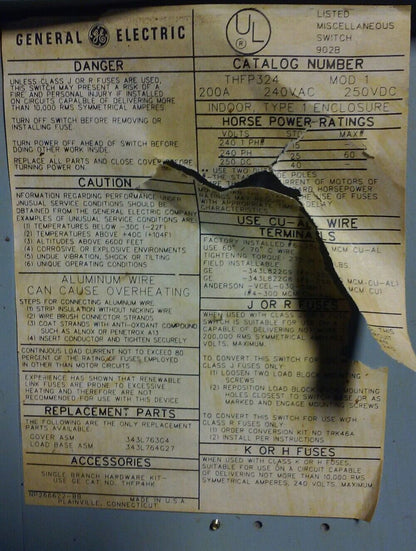 GENERAL GE ELECTRIC
UL
LISTED
MISCELLANEOUS
SWITCH
902B
DANGER
UNLESS CLASS J OR R FUSES ARE USED,
THIS SWITCH MAY PRESENT A RISK OF A
FIRE AND PERSONAL INJURY IF INSTALLED
ON CIRCUITS CAPABLE OF DELIVERING MORE
THAN 10,000 RMS SYMMETRICAL AMPERES
TURN OFF SWITCH BEFORE REMOVING OR
INSTALLING FUSE.
TURN POWER OFF AHEAD OF SWITCH BEFORE
DOING OTHER WORK INSIDE.
REPLACE ALL PARTS AND CLOSE COVER BEFORE
TURNING POWER ON.
CAUTION
INFORMATION REGARDING PERFORMANCE UNDER
UNUSUAL SERVICE CONDITIONS SHOULD BE
OBTAINED FROM THE GENERAL ELECTRIC COMPANY
EXAMPLES OF UNUSUAL SERVICE CONDITIONS ARE:
(1) TEMPERATURES BELOW -30C (-22F)
(2) TEMPERATURES ABOVE +40C (+104F)
(3) ALTITUDES ABOVE 6600 FEET
(4) CORROSIVE OR EXPLOSIVE ENVIRONMENTS
(5) UNDUE VIBRATION, SHOCK OR TILTING
(6) UNIQUE OPERATING CONDITIONS
ALUMINUM WIRE
CAN CAUSE OVERHEATING
STEPS FOR CONNECTING ALUMINUM WIRE.
(1) STRIP INSULATION WITHOUT NICKING WIRE
(2) WIRE BRUSH CONNECTOR STRANDS
(3) COAT STRANDS WITH ANTI-OXIDANT COMPOUND
SUCH AS ALNOX OR PENETROX A13
(4) INSERT CONDUCTOR AND TIGHTEN SECURELY
CONTINUOUS LOAD CURRENT NOT TO EXCEED 80
PERCENT OF THE RATING OF FUSES EMPLOYED
IN OTHER THAN MOTOR CIRCUITS
EXPERIENCE HAS SHOWN THAT RENEWABLE
LINK FUSES ARE PRONE TO EXCESSIVE
HEATING AND THEREFORE ARE NOT
RECOMMENDED FOR USE WITH THIS DEVICE
REPLACEMENT PARTS
THE FOLLOWING ARE THE ONLY REPLACEMENT
PARTS AVAILABLE
COVER ASM 343L763G4
LOAD BASE ASM 343L764G27
ACCESSORIES
SINGLE BRANCH HARDWARE KIT-
USE GE CAT NO. THFP4HK
MADE IN U.S.A.
PLAINVILLE, CONNECTICUT
CATALOG NUMBER
THFP324 MOD 1
200A 240VAC 250VDC
INDOOR, TYPE 1 ENCLOSURE
HORSE POWER RATINGS
VOLTS STD MAX*
240 1 PH 15 -
240 PH 25 60
250 DC 40
** USE TWO POLES
CURRENT OF MOTORS OF
HORSEPOWER
USE OF FUSES
DELAY
CHARACTERISTICS
USE CU-AL WIRE
TERMINALS
FACTORY INSTALLED MCM CU-AL)
USE 60° 70° C WIRE
TIGHTENING TORQUE LBS.
FIELD INSTALLABLE
GE -343L822G9 MCM CU-AL)
GE -343L822G MCM CU)
ANDERSON -VCEL-030
(#4-300 MCM
J OR R FUSES
WHEN USED WITH CLASS
SWITCH IS SUITABLE FOR USE ON A CIRCUIT
CAPABLE OF DELIVERING NOT MORE THAN
200,000 RMS SYMMETRICAL
VOLTS MAXIMUM.
TO CONVERT THIS SWITCH FOR
CLASS J FUSES ONLY
(1) LOOSEN TWO LOAD BASE MOUNTING
SCREWS
(2) REPOSITION LOAD BLOCK MOUNTING
HOLES CLOSEST TO SWITCH BASE OR AS
MARKED AND ENGAGE MOUNTING SCREWS
TO CONVERT THIS SWITCH FOR USE WITH
CLASS R FUSES ONLY
(1) ORDER CONVERSION KIT NO. TRK46A
(2) INSTALL PER INSTRUCTIONS
K OR H FUSES
WHEN USED WITH CLASS K OR H FUSES,
SUITABLE FOR USE ON A CIRCUIT CAPABLE
OF DELIVERING NOT MORE THAN 10,000 RMS
SYMMETRICAL AMPERES, 240 VOLTS, MAXIMUM